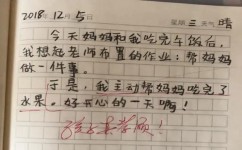 2018.12月5日 星期三 天气 晴
今天妈妈和我吃完午饭后,
我想起老师布置的作业:帮妈妈
做一件事。
于是,我主动帮妈妈吃完了
水果。好开心的一天啊!